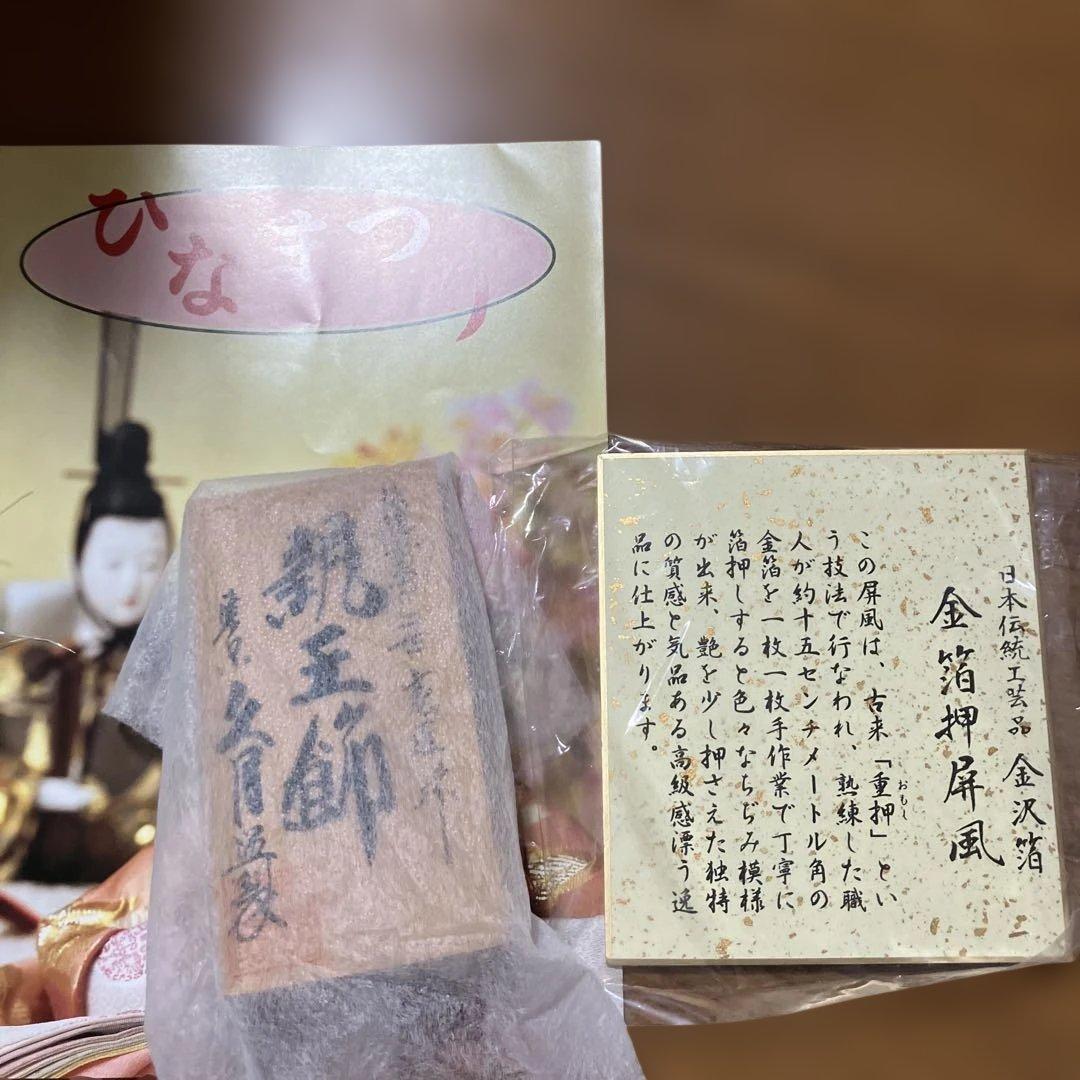 ひなまつり
親王飾
久月
日本伝統工芸品 金沢箔
金箔押屏風
この屏風は、古来「重押」とい
おもし
う技法で行なわれ、熟練した職
人が約十五センチメートル角の
金箔を一枚一枚手作業で丁寧に
箔押しすると色々なちぢみ模様
が出来、艶を少し押さえた独特
の質感と気品ある高級感漂う逸
品に仕上がります。